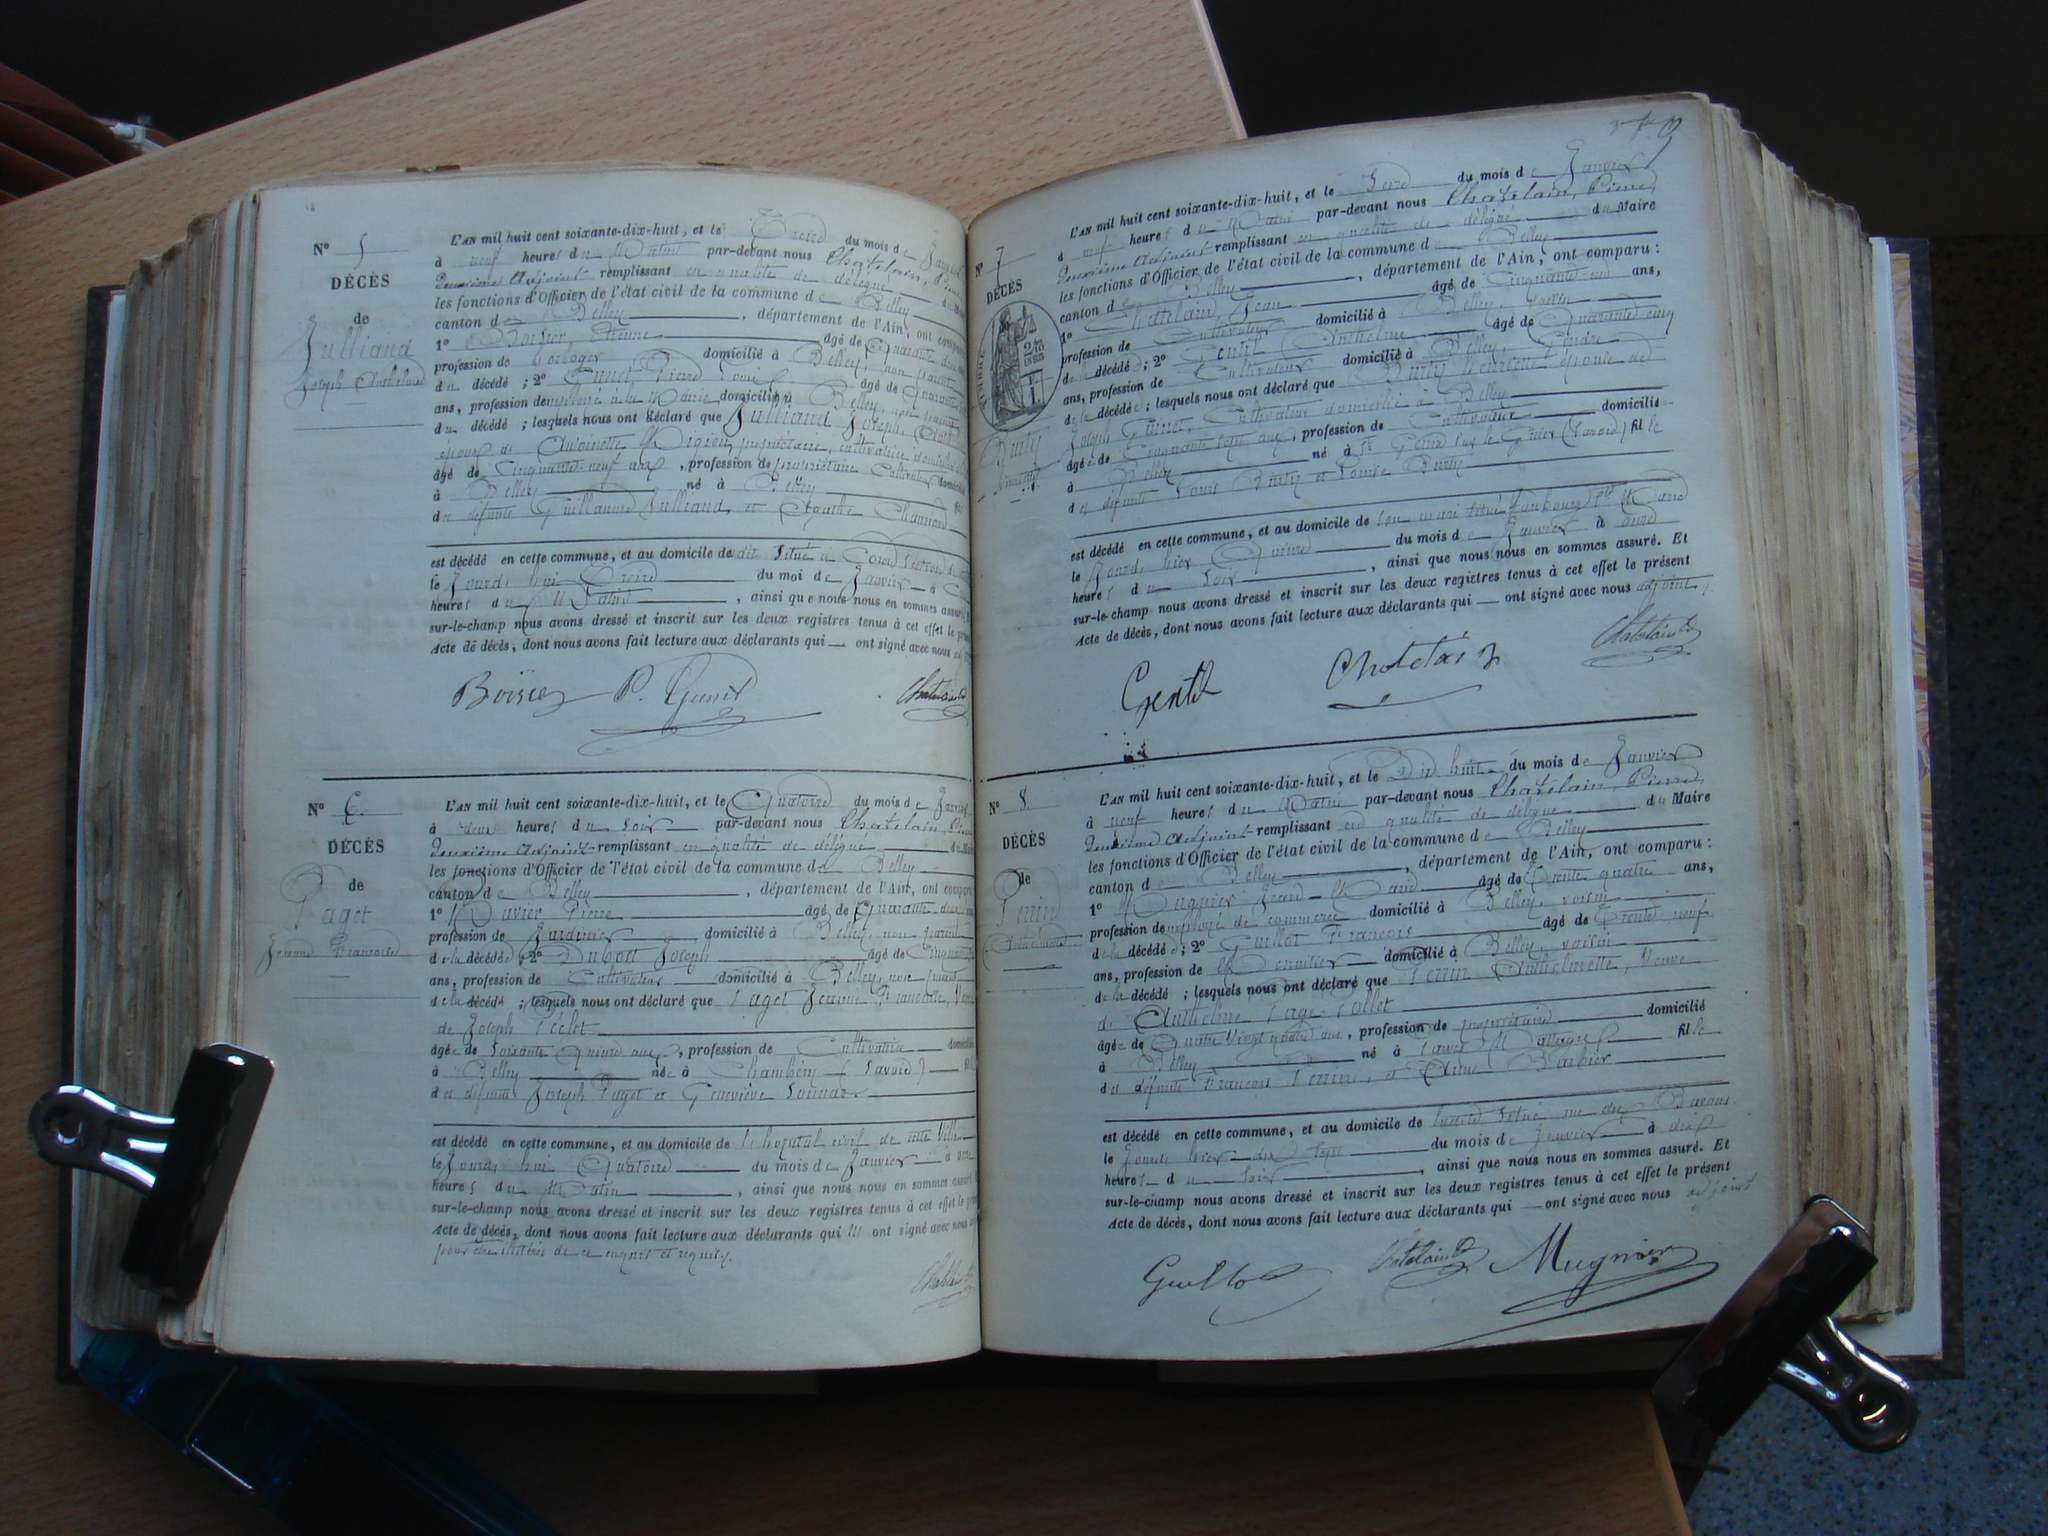 N° 5
DÉCÈS
de
Julliand
Joseph Anthelme
L'AN mil huit cent soixante-dix-huit, et le Treize du mois de Janvier
à neuf heures du Matin par-devant nous Chatelain, Pierre
Deuxième Adjoint remplissant en qualité de délégué du Maire
les fonctions d'Officier de l'état civil de la commune de Belley
canton de Belley, département de l'Ain, ont comparu
1° Boisier, Etienne âgé de Quarante deux
profession de horloger domicilié à Belley, non parent
du décédé ; 2° Pierre âgé de Quarante
ans, profession de à la Mairie domicilié à Belley,
du décédé ; lesquels nous ont déclaré que Julliand Joseph,
époux de Antoinette propriétaire, cultivateur
âgé de Cinquante neuf ans, profession de propriétaire Cultivateur domicilié
à Belley né à Belley fil
de défunts Guillaume Julliand, et Agathe
est décédé en cette commune, et au domicile de dit situé
le Jourd'hui Treize du mois de Janvier à
heures du Matin, ainsi que nous nous en sommes assuré.
sur-le-champ nous avons dressé et inscrit sur les deux registres tenus à cet effet le
Acte de décès, dont nous avons fait lecture aux déclarants qui — ont signé avec nous
Boisier P. Chatelain
N° 6
DÉCÈS
de
Paget
Jeanne Françoise
L'AN mil huit cent soixante-dix-huit, et le Quatorze du mois de Janvier
à deux heures du Soir par-devant nous Chatelain, Pierre
Deuxième Adjoint remplissant en qualité de délégué du Maire
les fonctions d'Officier de l'état civil de la commune de Belley
canton de Belley, département de l'Ain, ont comparu
1° Pierre âgé de Quarante deux
profession de Jardinier domicilié à Belley, non parent
de la décédée ; 2° Joseph âgé de Cinquante
ans, profession de Cultivateur domicilié à Belley, non parent
de la décédé ; lesquels nous ont déclaré que Paget Jeanne Françoise, Veuve
de Joseph Péclet
âgée de Soixante Quinze ans, profession de Cultivatrice domicilié
à Belley née à Chambéry (Savoie) fil
de défunts Joseph Paget et Geneviève
est décédé en cette commune, et au domicile de l'hopital civil de cette Ville
le Jourd'hui Quatorze du mois de Janvier à onze
heures du Matin, ainsi que nous nous en sommes assuré
sur-le-champ nous avons dressé et inscrit sur les deux registres tenus à cet effet le
Acte de décès, dont nous avons fait lecture aux déclarants qui ont signé avec nous
pour être illitérés de ce enquis et requis.
Chatelain
N° 7
DÉCÈS
TIMBRE
Burty
L'AN mil huit cent soixante-dix-huit, et le Seize du mois de Janvier
à neuf heures du Matin par-devant nous Chatelain, Pierre,
Deuxième Adjoint remplissant en qualité de délégué du Maire
les fonctions d'Officier de l'état civil de la commune de Belley
canton de Belley, département de l'Ain, ont comparu :
1° Chatelain, Jean âgé de Cinquante un ans,
profession de Cultivateur domicilié à Belley, voisin
de la décédée ; 2° Gentil Anthelme âgé de Quarante cinq
ans, profession de Cultivateur domicilié à Belley, Gendre
de la décédée ; lesquels nous ont déclaré que Burty épouse de
Joseph Cultivateur domicilié à Belley
âgée de Cinquante sept ans, profession de Cultivateur domicilié
à Belley né à St Genix sur le Guier (Savoie) fille
de défunts Louis Burty et Louise Burty
est décédé en cette commune, et au domicile de son mari situé faubourg
le Jourd'hier Quinze du mois de Janvier à onze
heures du Soir, ainsi que nous nous en sommes assuré. Et
sur-le-champ nous avons dressé et inscrit sur les deux registres tenus à cet effet le présent
Acte de décès, dont nous avons fait lecture aux déclarants qui — ont signé avec nous adjoint.
Gentil Chatelain Chatelain
N° 8
DÉCÈS
de
Perrin
Anthelmette
L'AN mil huit cent soixante-dix-huit, et le Dix huit du mois de Janvier
à neuf heures du Matin par-devant nous Chatelain, Pierre,
Deuxième Adjoint remplissant en qualité de délégué du Maire
les fonctions d'Officier de l'état civil de la commune de Belley
canton de Belley, département de l'Ain, ont comparu :
1° Mugnier Jean-Marie âgé de Trente quatre ans,
profession de employé de commerce domicilié à Belley, voisin
de la décédée ; 2° Guillot François âgé de Trente neuf
ans, profession de Menuisier domicilié à Belley, voisin
de la décédé ; lesquels nous ont déclaré que Perrin Anthelmette, Veuve
de Anthelme Page
âgée de Quatre Vingt quatre ans, profession de propriétaire domicilié
à Belley né à fille
de défunts François Perrin, et Barbier
est décédé en cette commune, et au domicile de situé rue des Barons
le Jourd'hier dix sept du mois de Janvier à dix
heures du Soir, ainsi que nous nous en sommes assuré. Et
sur-le-champ nous avons dressé et inscrit sur les deux registres tenus à cet effet le présent
Acte de décès, dont nous avons fait lecture aux déclarants qui — ont signé avec nous adjoint
Guillot Chatelain Mugnier